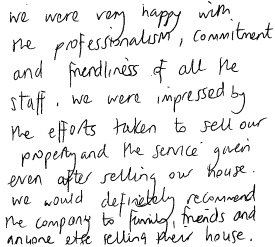 we were very happy with
the professionalism, commitment
and friendliness of all the
staff. we were impressed by
the efforts taken to sell our
property and the service given
even after selling our house.
we would definitely recommend
the company to family, friends and
anyone else selling their house.